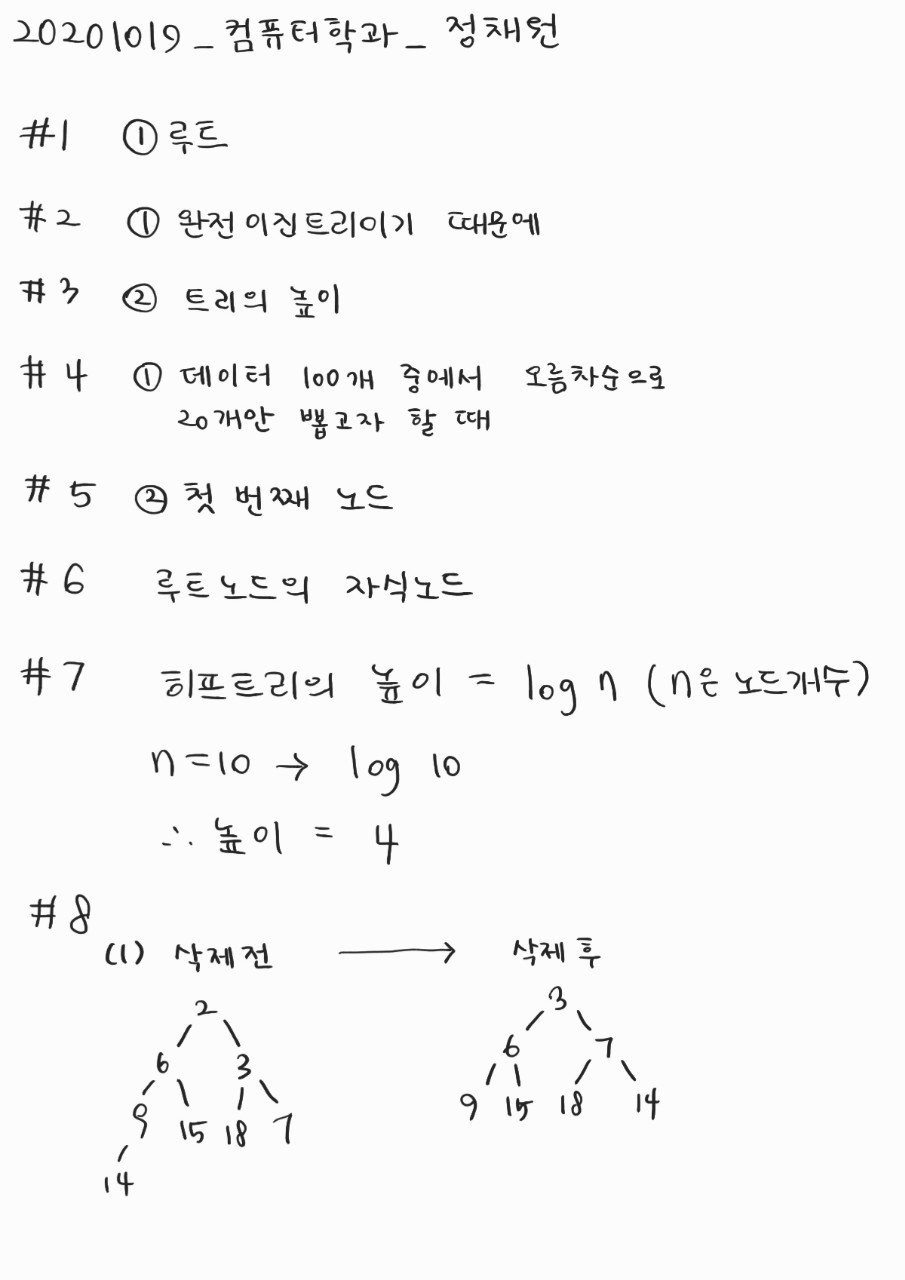 20201019_컴퓨터학과_정채원
#1 ① 루트
#2 ① 완전이진트리이기 때문에
#3 ② 트리의 높이
#4 ① 데이터 100개 중에서 오름차순으로
20개만 뽑고자 할 때
#5 ② 첫 번째 노드
#6 루트노드의 자식노드
#7 히프트리의 높이 = log n (n은 노드개수)
n=10 → log 10
∴ 높이 = 4
#8
(1) 삭제전 → 삭제 후
2 3
6 3 6 7
9 15 18 7 9 15 18 14
14